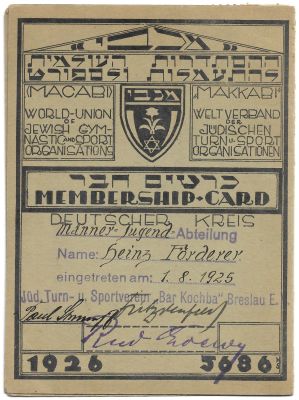 מכבי
ההסתדרות העולמית
להתעמלות ולספורט
(MACABI) (MAKKABI)
מכבי
WORLD-UNION
OF
JEWISH GYM-
NASTIC AND SPORT
ORGANISATIONS
WELTVERBAND
DER
JÜDISCHEN
TURN U. SPORT
ORGANISATIONEN
כרטיס חבר
MEMBERSHIP-CARD
DEUTSCHER KREIS
Männer-Jugend-Abteilung
Name: Heinz Förderer
eingetreten am: 1. 8. 1925
Jüd. Turn- u. Sportverein "Bar Kochba" Breslau E.
1926 5686